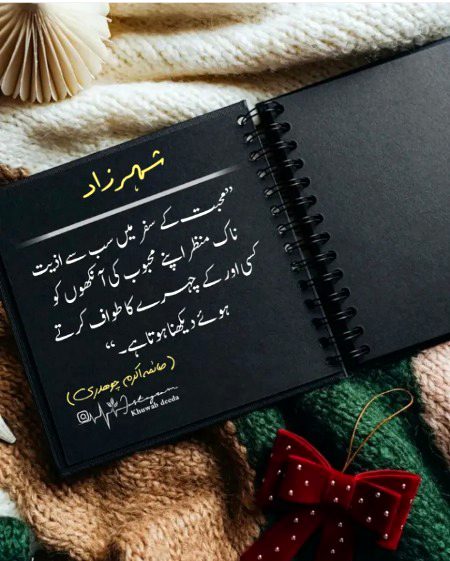 شہرزاد
”محبت کے سفر میں سب سے اذیت
ناک منظر اپنے محبوب کی آنکھوں کو
کسی اور کے چہرے کا طواف کرتے
ہوئے دیکھنا ہوتا ہے۔“
(صائمہ اکرم چوھدری)
Khuwab deeda